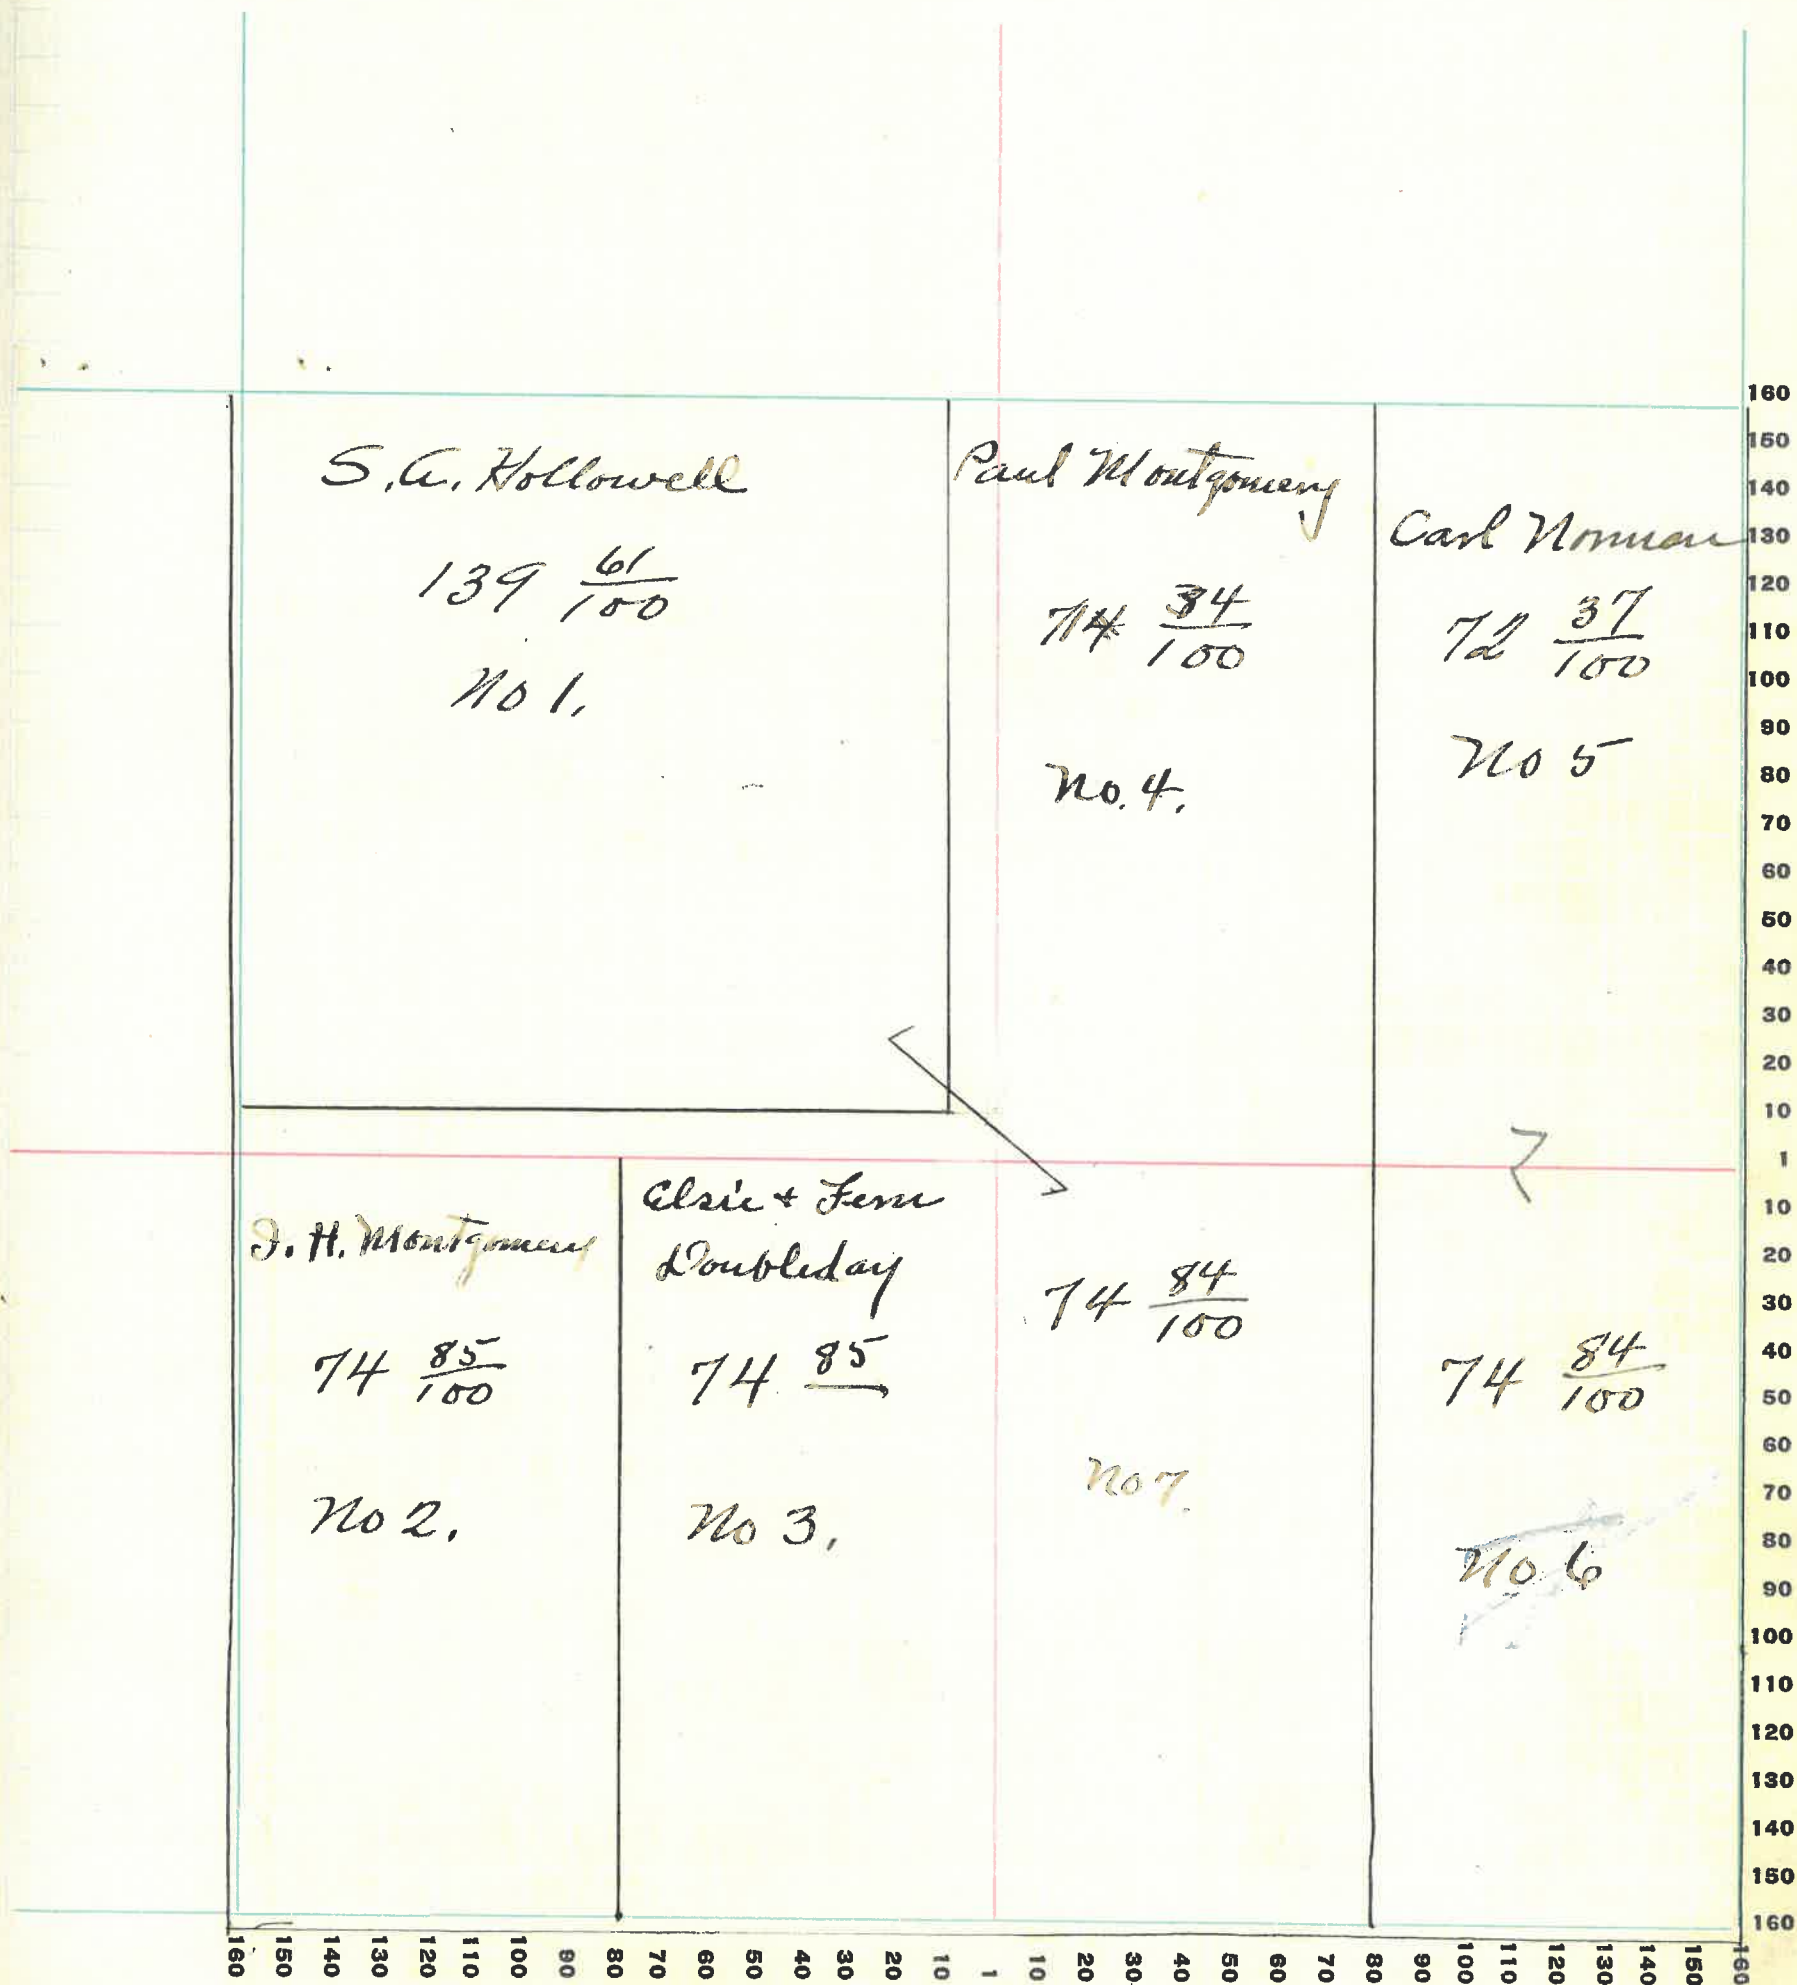 S.A. Hollowell
139 61/100
No 1.
Paul Montgomery
74 34/100
No. 4.
Carl Norman
72 37/100
No 5
J. H. Montgomery
74 85/100
No 2.
Elsie + Fern
Doubleday
74 85
No 3.
74 84/100
No 7.
74 84/100
No 6
160
150
140
130
120
110
100
90
80
70
60
50
40
30
20
10
1
10
20
30
40
50
60
70
80
90
100
110
120
130
140
150
160
160 150 140 130 120 110 100 90 80 70 60 50 40 30 20 10 1 10 20 30 40 50 60 70 80 90 100 110 120 130 140 150 160